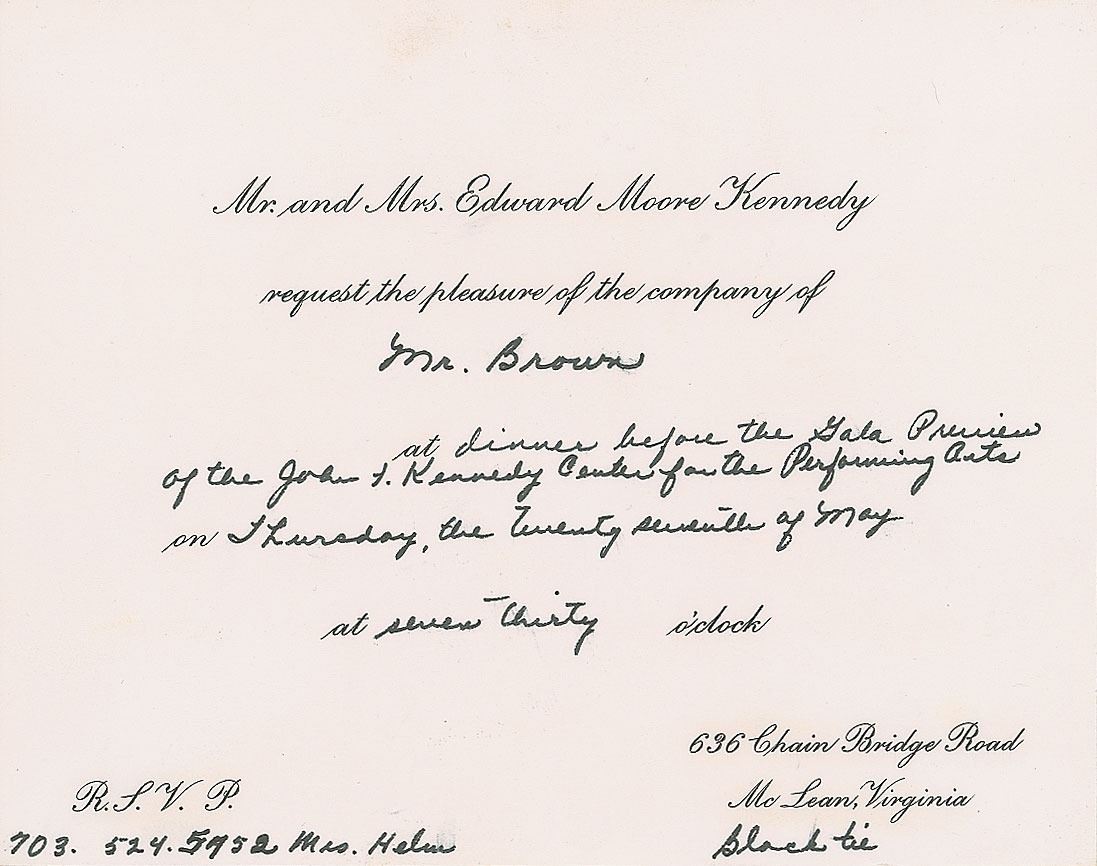 Mr. and Mrs. Edward Moore Kennedy
request the pleasure of the company of
Mr. Brown
at dinner before the Gala Preview
of the John F. Kennedy Center for the Performing Arts
on Thursday, the twenty seventh of May
at seven-thirty o'clock
636 Chain Bridge Road
Mc Lean, Virginia
Black tie
R.S.V.P.
703. 524. 5952 Mrs. Helm